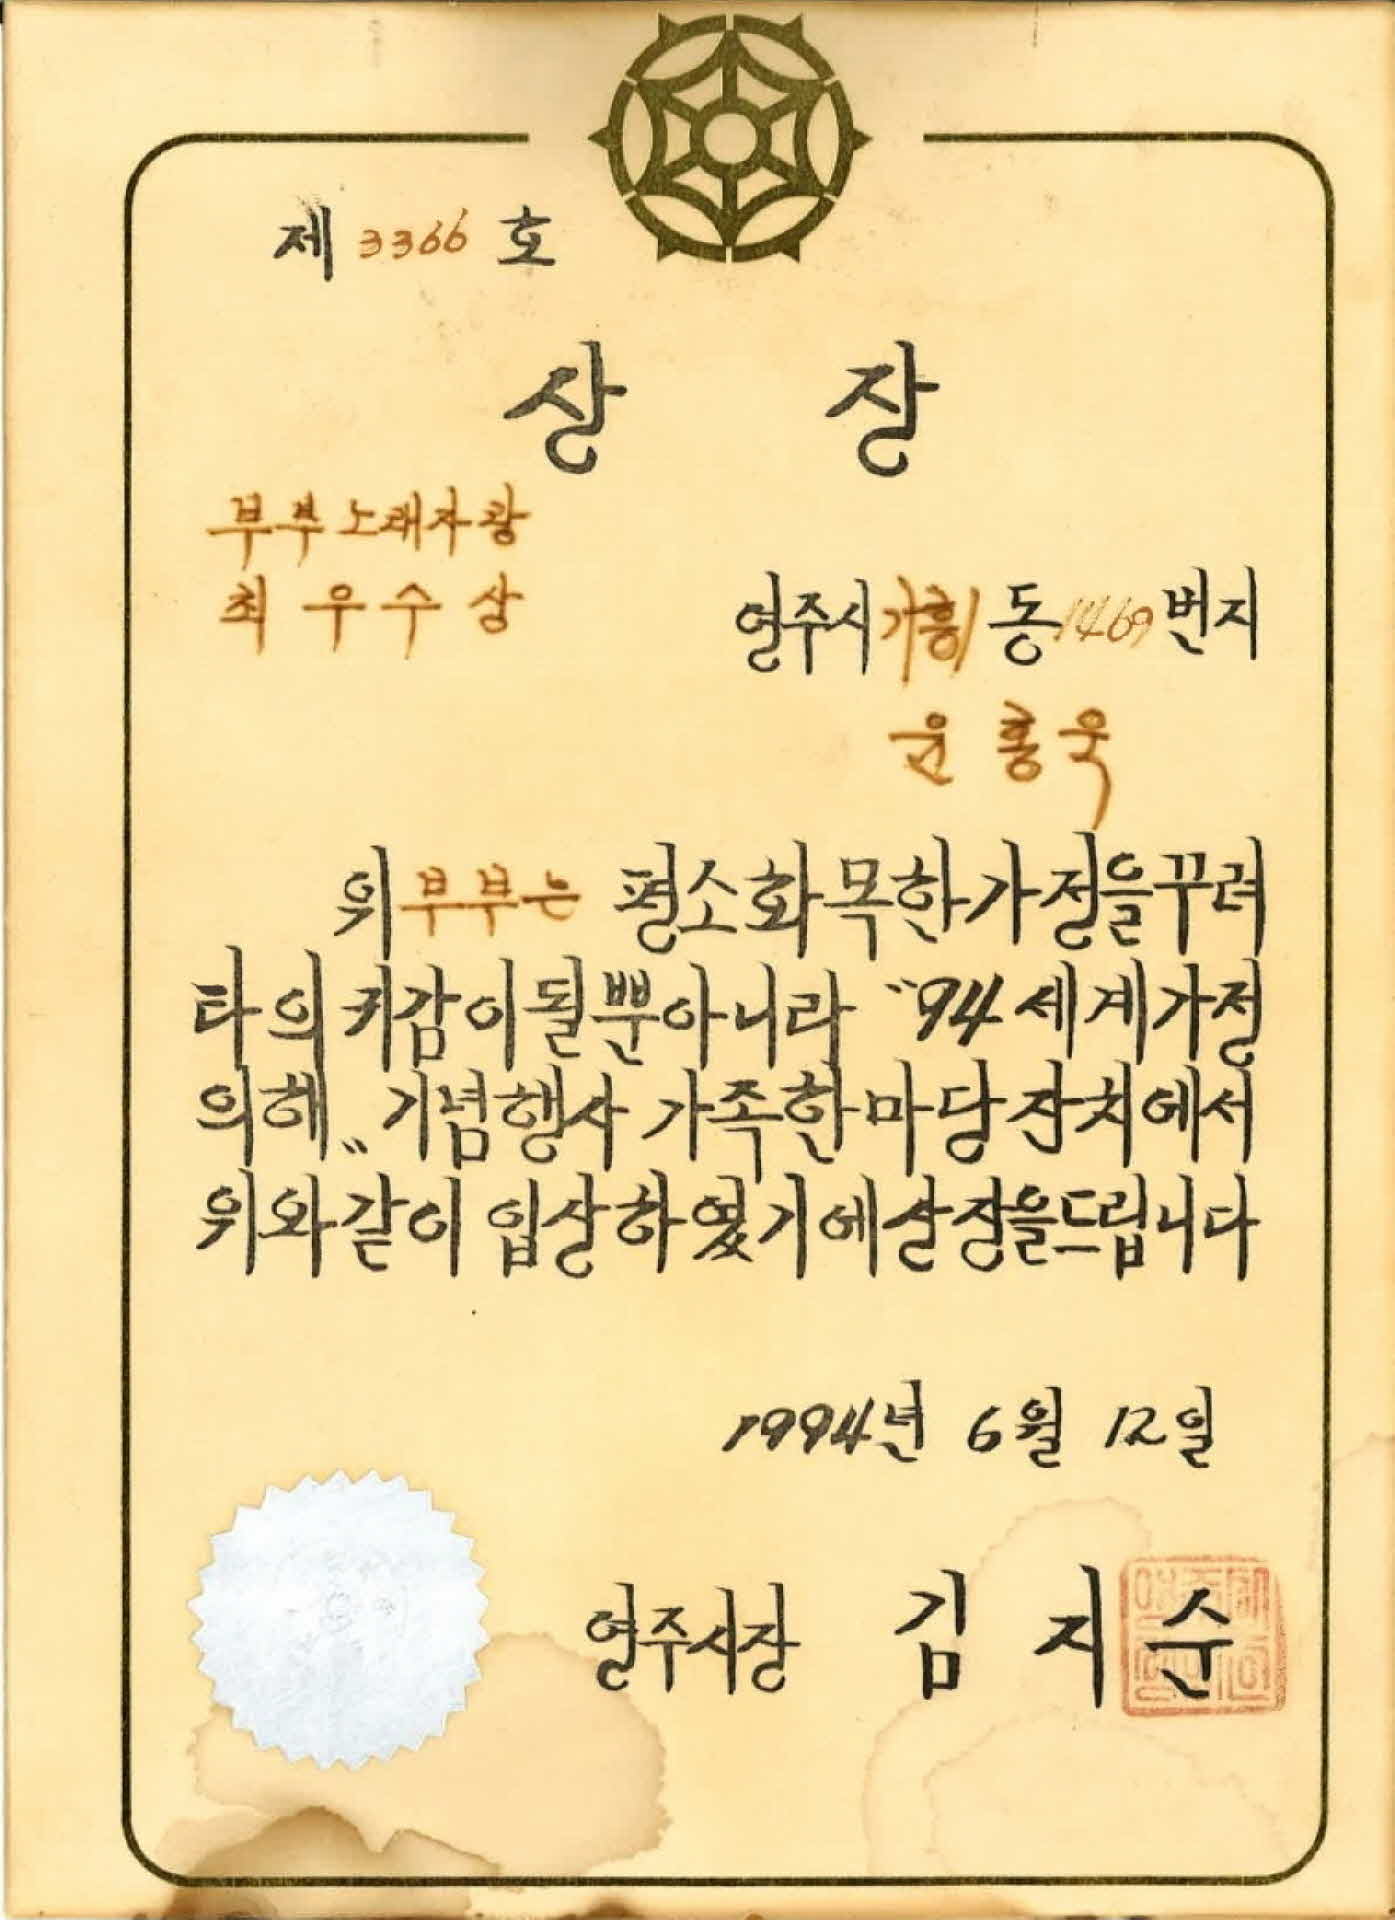 제 3366 호
상 장
부부노래자랑
최우수상
영주시 가흥1동 1469번지
윤홍욱
위 부부는 평소화목한가정을꾸려
타의귀감이될뿐아니라 "94세계가정
의해" 기념행사 가족한마당잔치에서
위와같이 입상하였기에상장을드립니다
1994년 6월 12일
영주시장 김지순